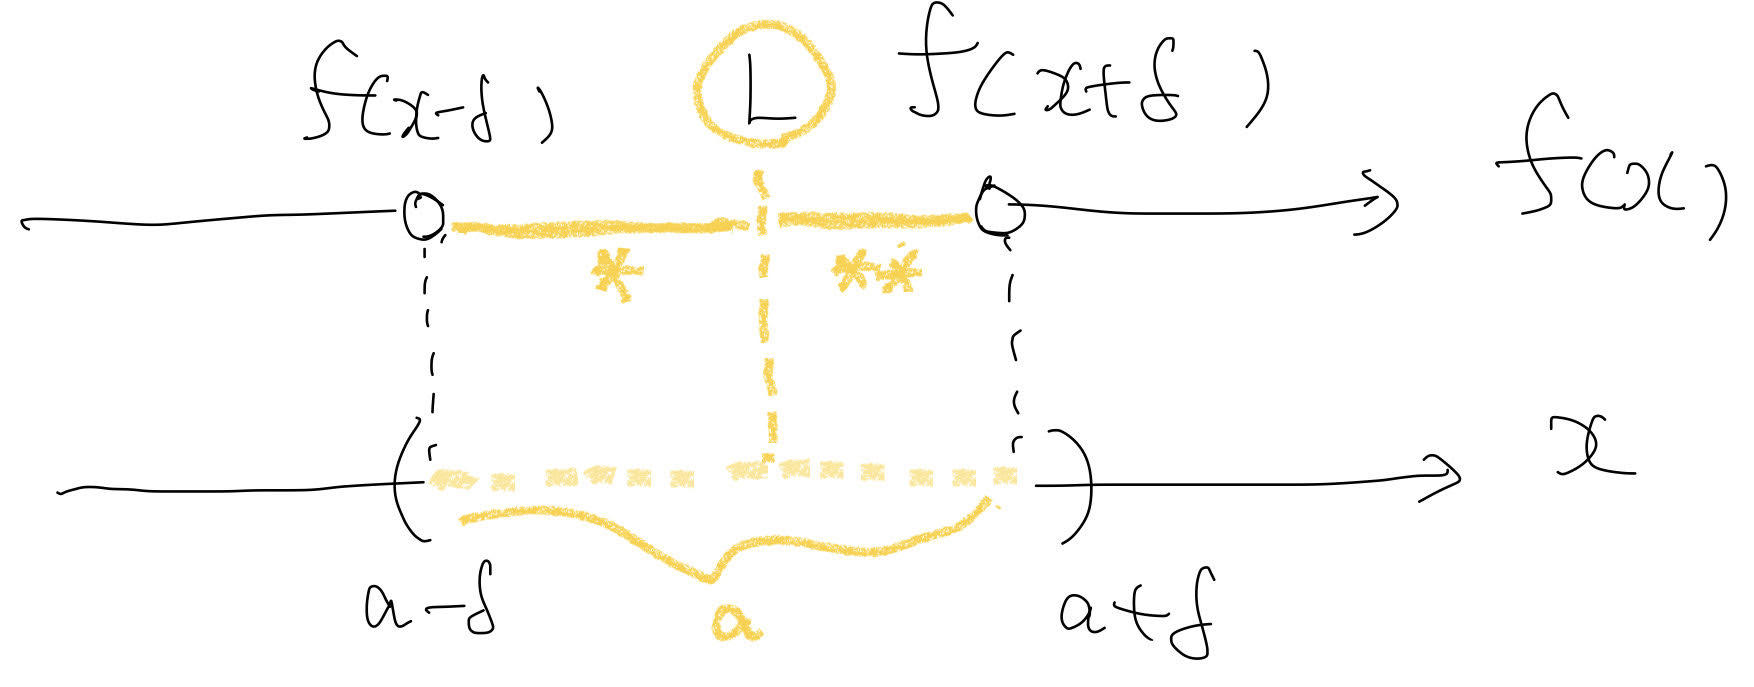 f(x-δ) L f(x+δ)
f(x)
* **
x
a-δ a+δ
a